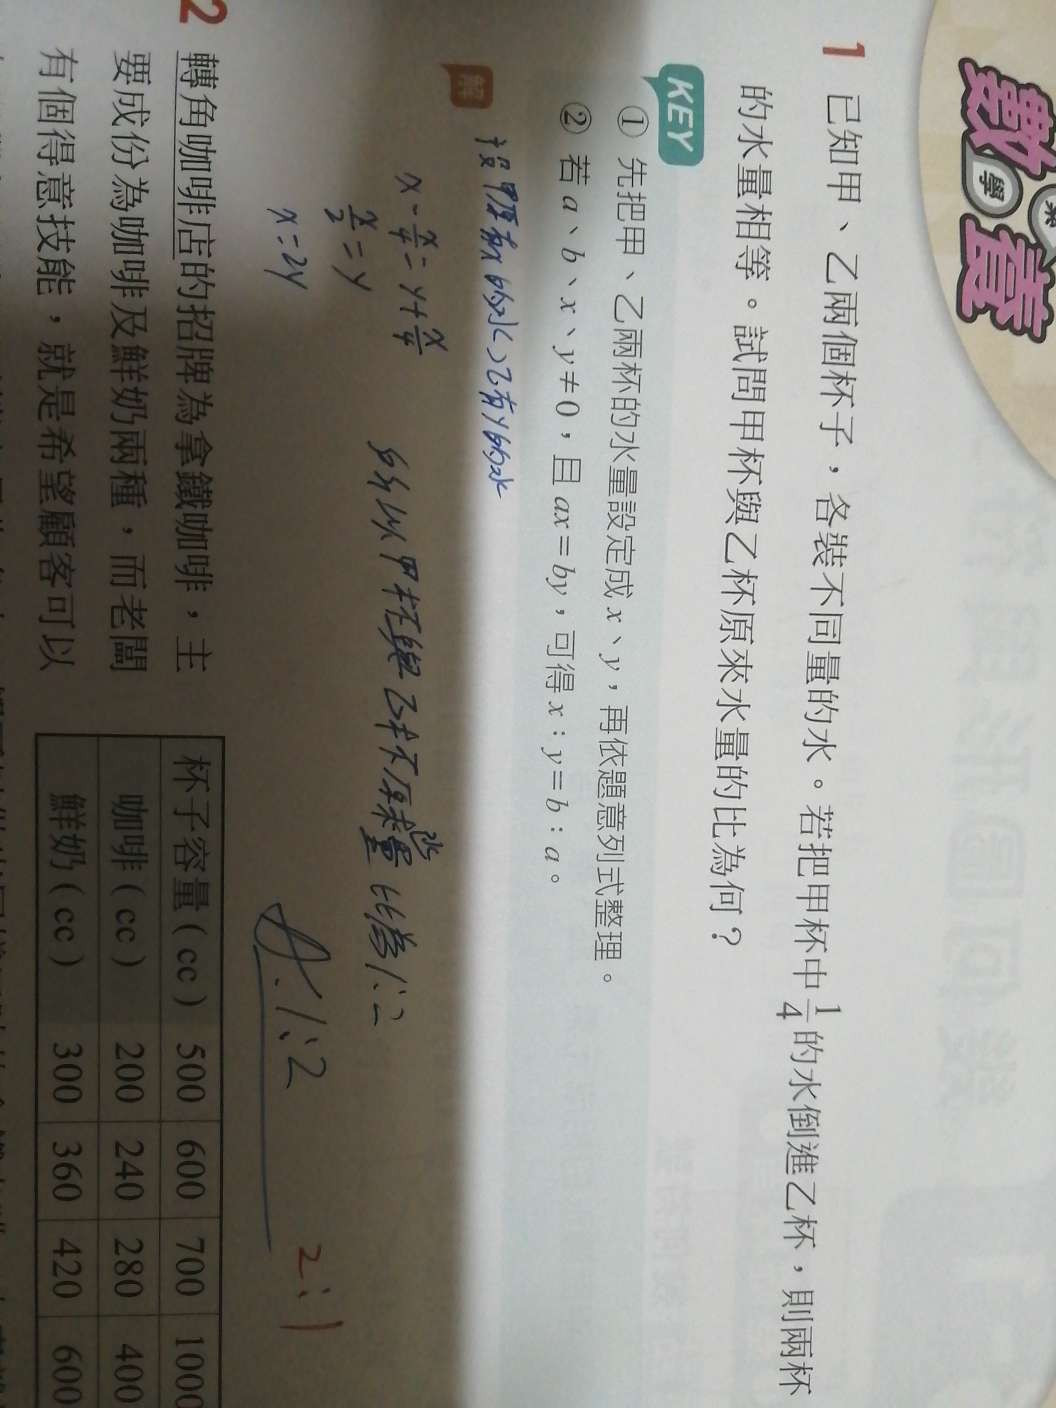 數學素養
1 已知甲、乙兩個杯子，各裝不同量的水。若把甲杯中1/4的水倒進乙杯，則兩杯
的水量相等。試問甲杯與乙杯原來水量的比為何？
KEY
① 先把甲、乙兩杯的水量設定成x、y，再依題意列式整理。
② 若a、b、x、y≠0，且ax=by，可得x：y=b：a。
解
設甲原有x的水，乙有y的水
x-x/4=y+x/4
x/2=y
x=2y
所以甲杯與乙杯原來水量比為1:2
A:1:2
2:1
2 轉角咖啡店的招牌為拿鐵咖啡，主
要成份為咖啡及鮮奶兩種，而老闆
有個得意技能，就是希望顧客可以
杯子容量(cc) 500 600 700 1000
咖啡(cc) 200 240 280 400
鮮奶(cc) 300 360 420 600